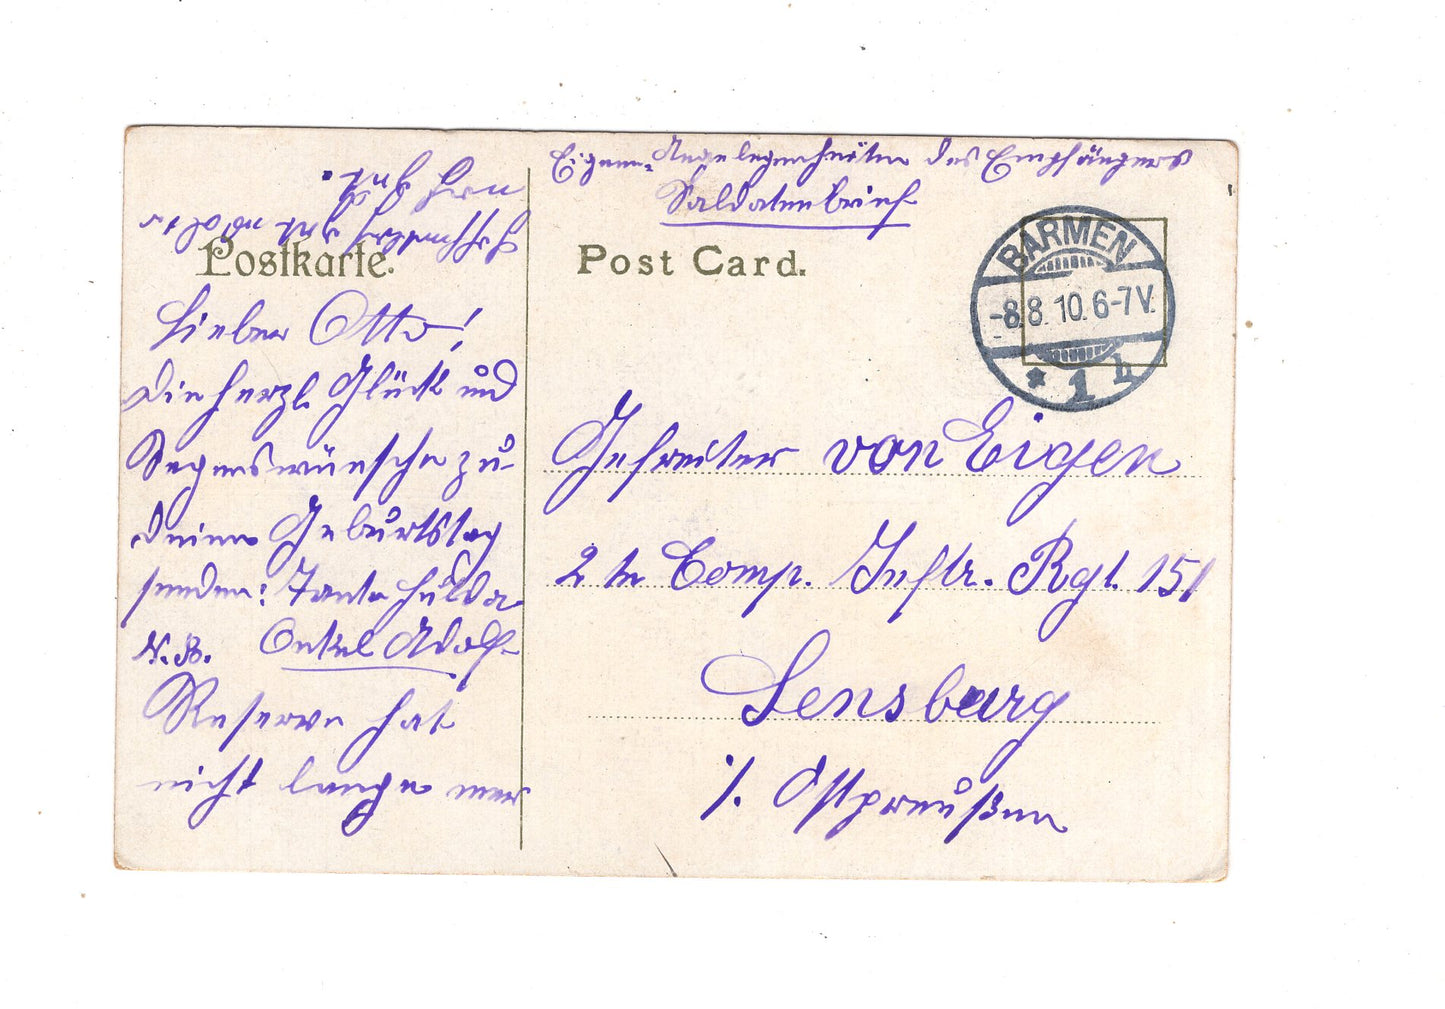 Postkarte.
Lieber Otto!
Die herzl. Glück und
Segenswünsche zu-
deinem Geburtstag
senden: Tante Hulda
Onkel Adolf
N.B.
Reserve hat
nicht lange mer
Eigene Angelegenheiten des Empfängers
Soldatenbrief
Post Card.
BARMEN
-8.8.10.6-7V.
* 1 h
Gefreiter von Eigen
2te Comp. Inftr. Rgt. 151
Sensburg
i/. Ostpreußen